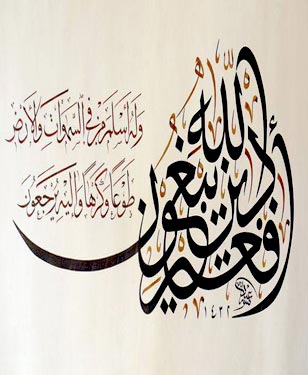 أفغير دين الله يبغون
وله أسلم من في السموات والأرض
طوعا وكرها وإليه يرجعون
١٤٣٢